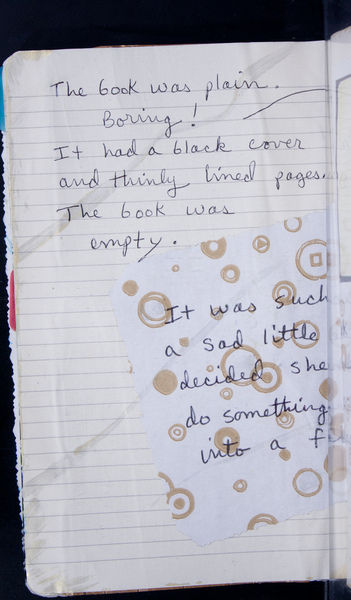 The book was plain.
Boring!
It had a black cover
and thinly lined pages.
The book was
empty.
It was such
a sad little
decided she
do something
into a f